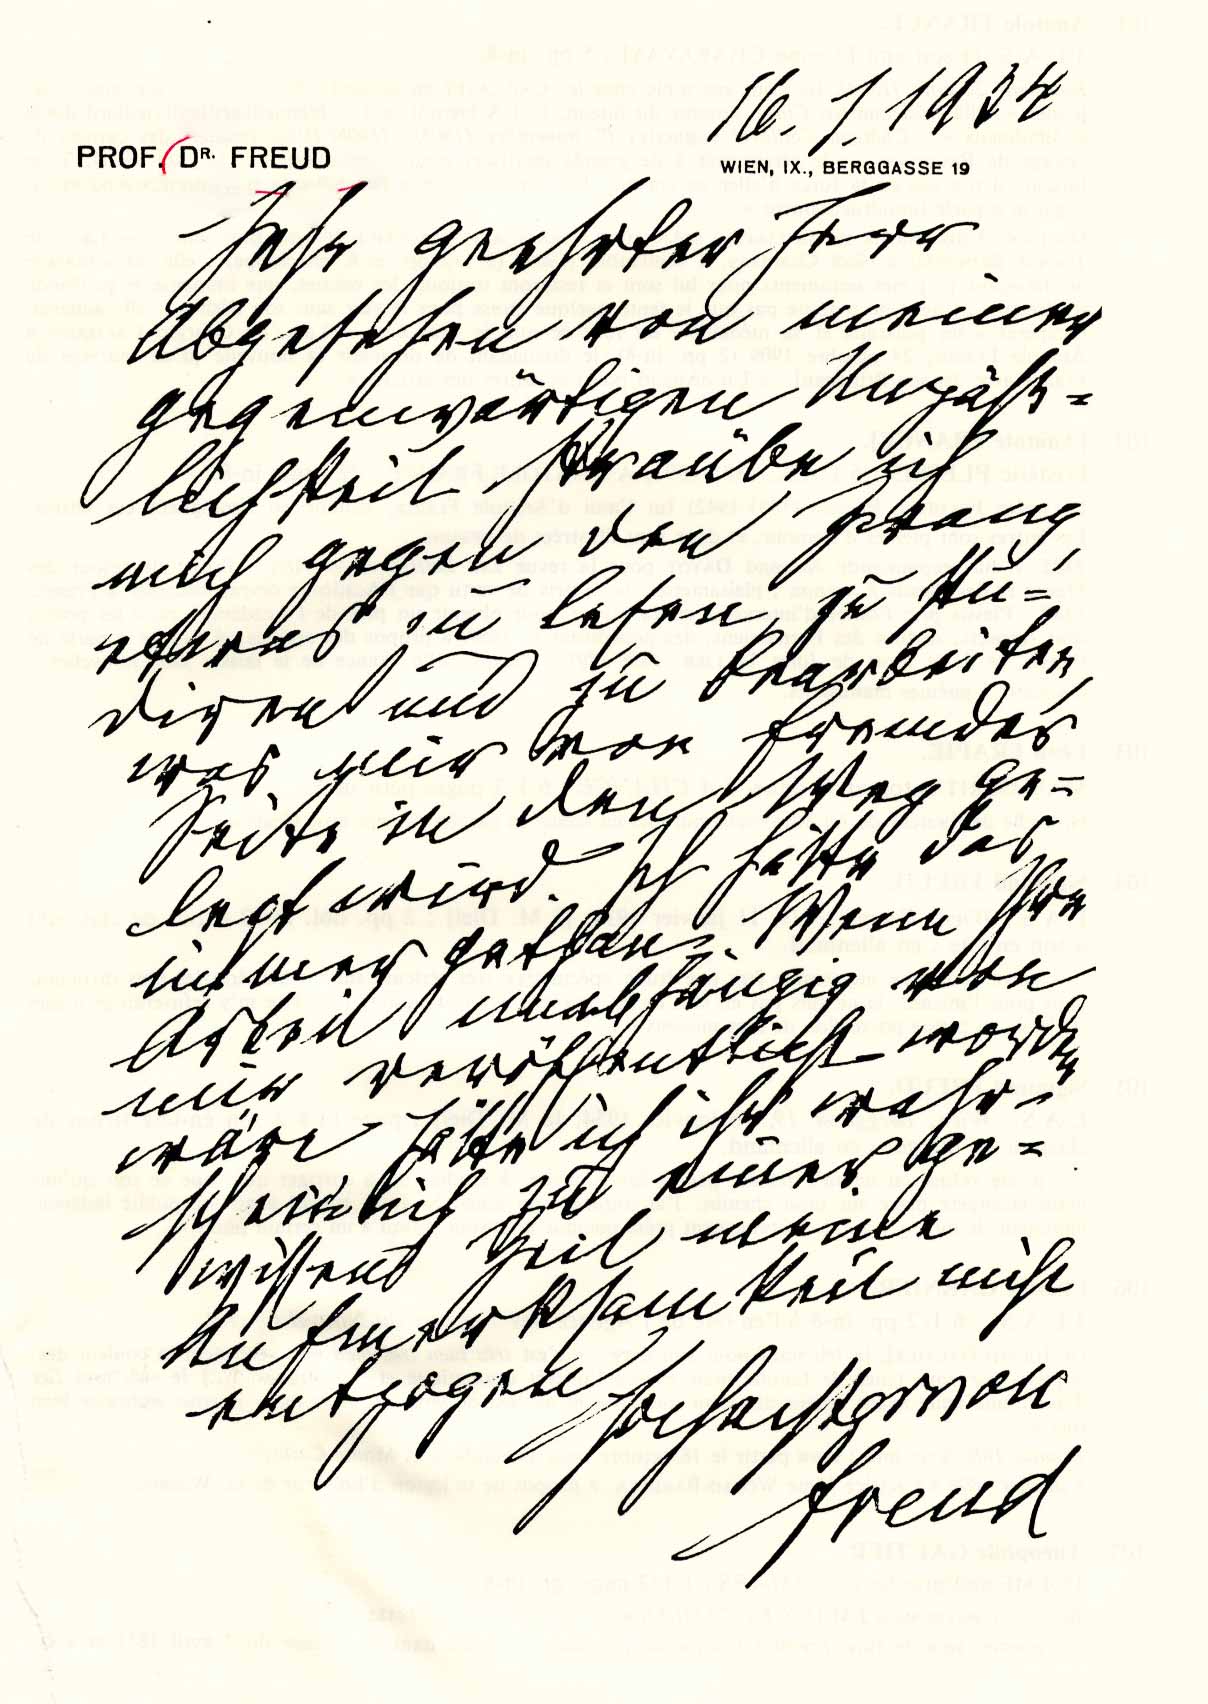 16. 1. 1934
PROF. DR. FREUD
WIEN, IX., BERGGASSE 19
Sehr geehrter Herr
Abgesehen von meiner
gegenwärtigen Unpäß-
lichkeit sträube ich
mich gegen den Zwang
etwas zu lesen, zu stu-
diren und zu bearbeiten,
was mir von fremder
Seite in den Weg ge-
legt wird. Ich hätte das
immer gethan. Wenn Ihre
Arbeit unabhängig von
mir veröffentlicht worden
wäre hätte ich ihr wahr-
scheinlich zu einer ge-
wissen Zeit meine
Aufmerksamkeit nicht
entzogen
Hochachtungsvoll
Freud